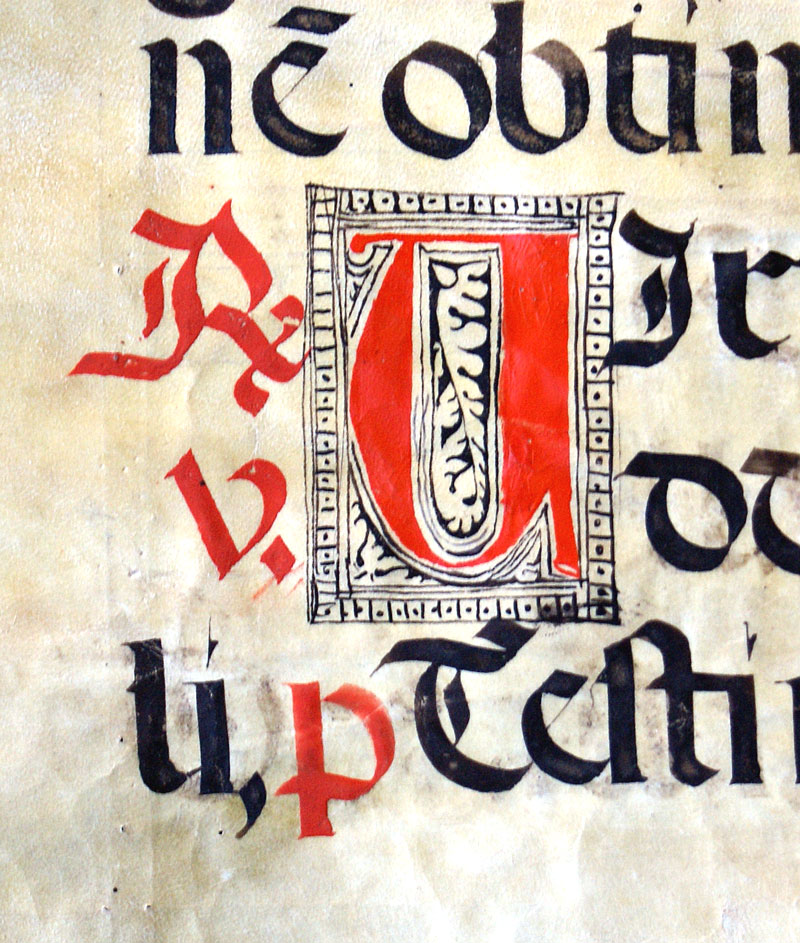 nē obtin
℟ UIr
V.
li, p Testi